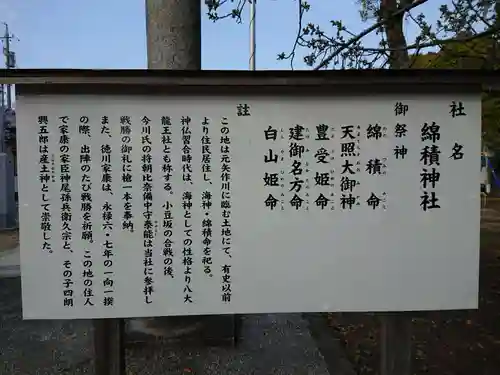 社名
綿積神社
御祭神
綿積命
天照大御神
豊受姫命
建御名方命
白山姫命
註
この地は元矢作川に臨む土地にて、有史以前
より住民居住し、海神・綿積命を祀る。
神仏習合時代は、海神としての性格より八大
龍王社とも称する。小豆坂の合戦の後、
今川氏の将朝比奈備中守泰能は当社に参拝し
戦勝の御礼に槍一本を奉納。
また、徳川家康は、永禄六・七年の一向一揆
の際、出陣のたび戦勝を祈願。この地の住人
で家康の家臣神尾孫兵衛久宗と、その子四朗
興五郎は産土神として崇敬した。